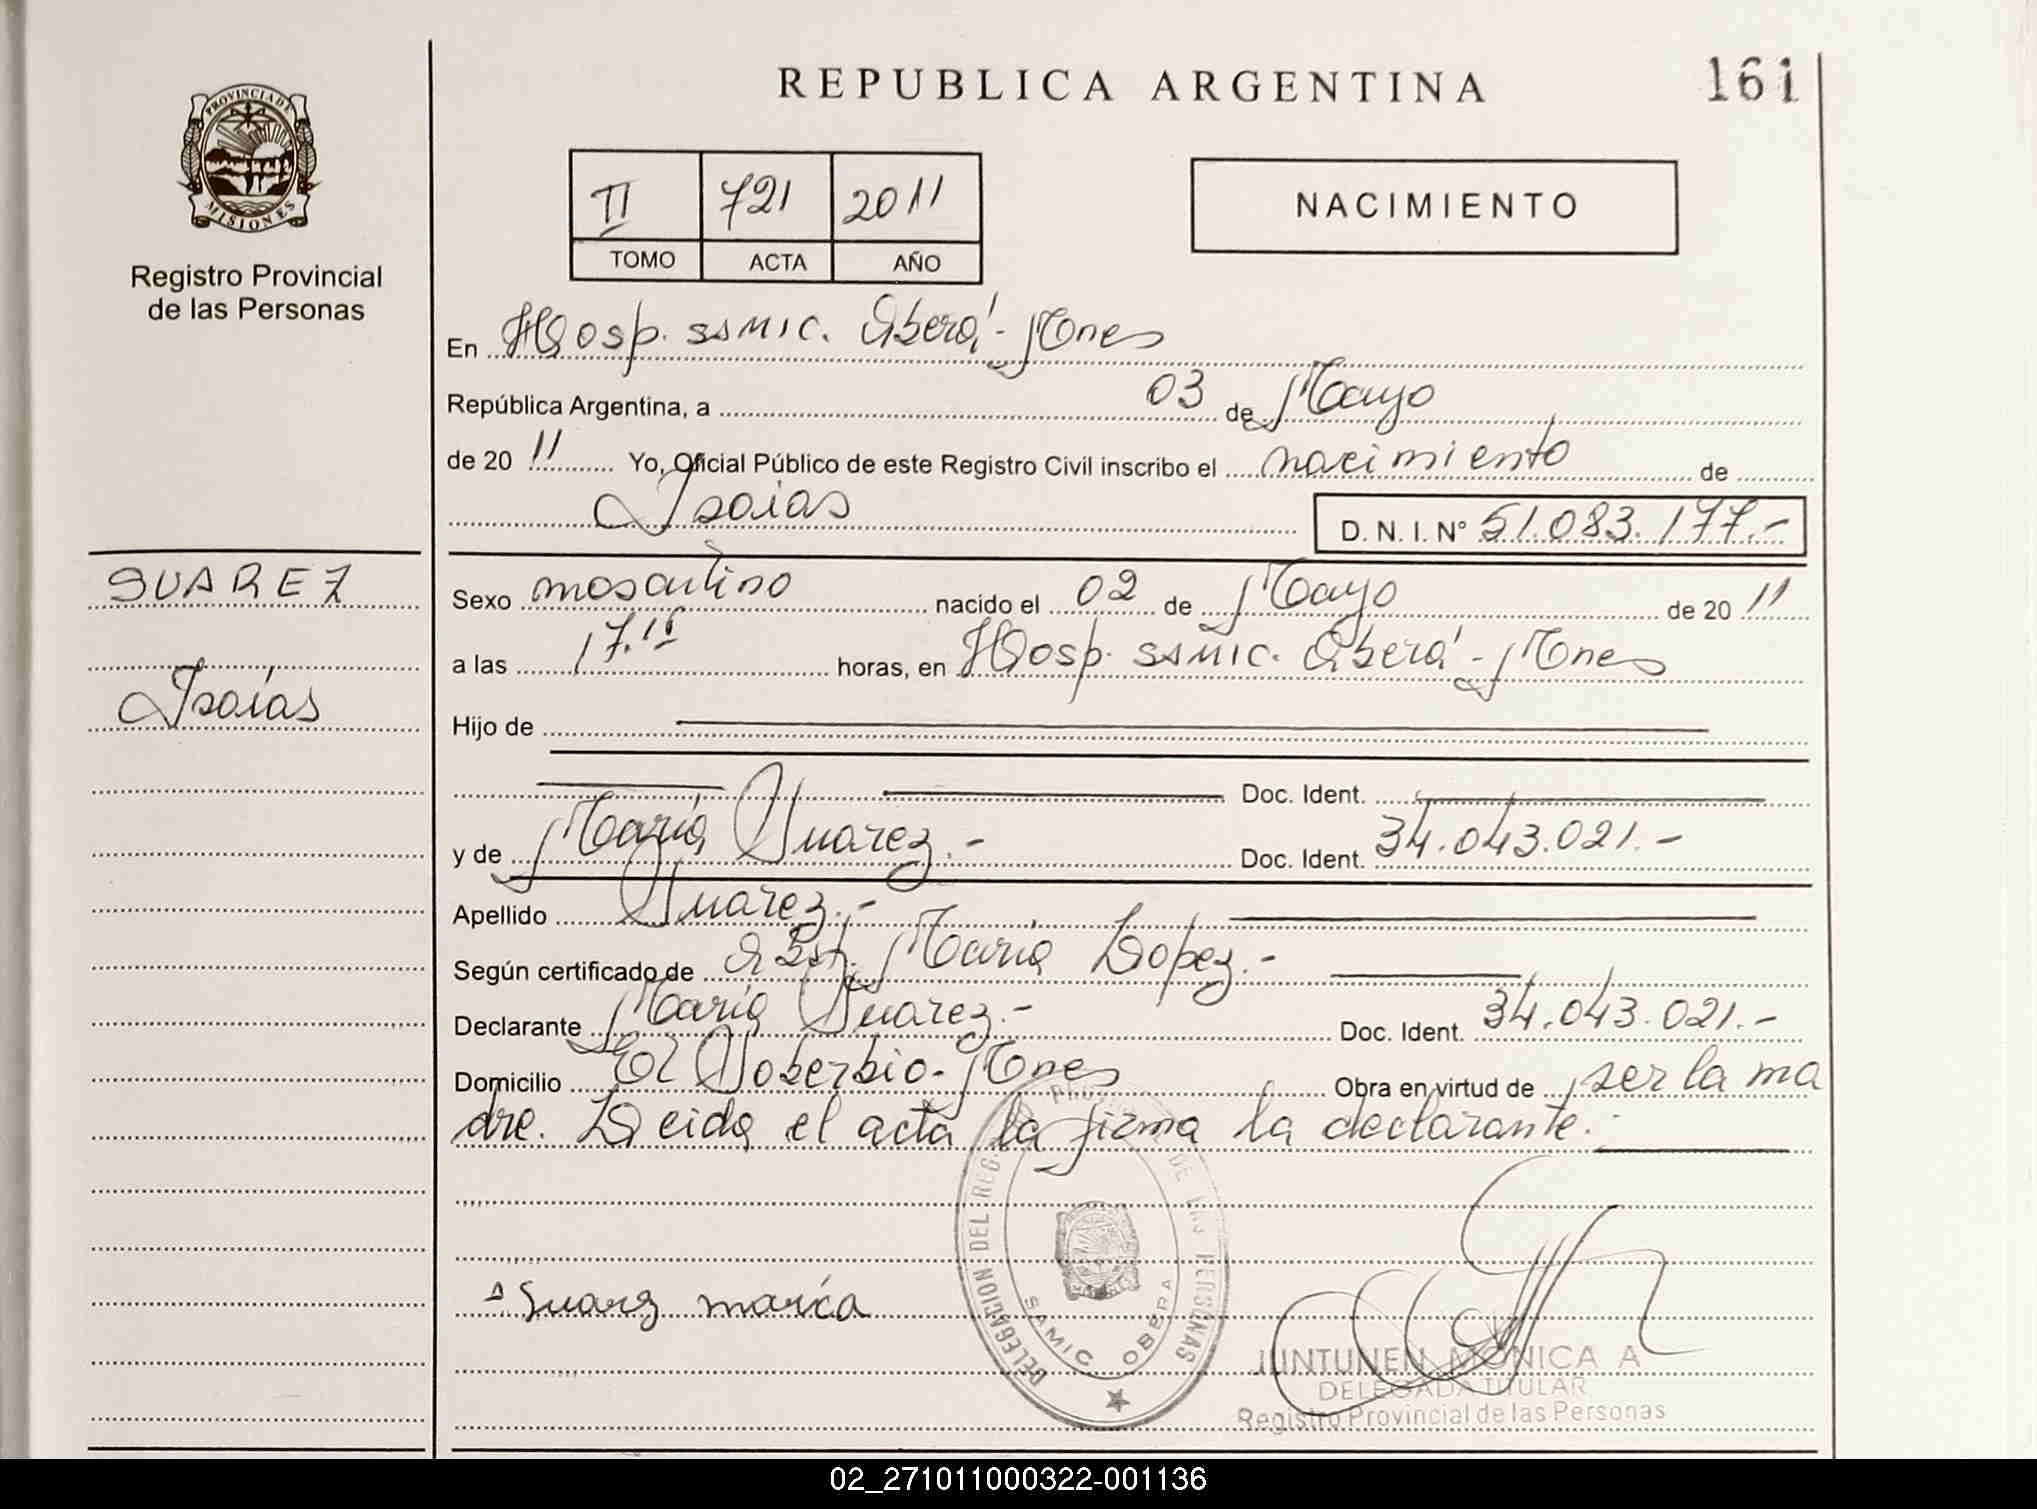 REPUBLICA ARGENTINA
161
PROVINCIA DE
MISIONES
Registro Provincial
de las Personas
II 721 2011
TOMO ACTA AÑO
NACIMIENTO
En Hosp. SAMIC. Oberá - Mnes
República Argentina, a 03 de Mayo
de 2011 Yo, Oficial Público de este Registro Civil inscribo el nacimiento de
Isaías
D. N. I. N° 51.083.177.-
SUAREZ
Isaías
Sexo masculino nacido el 02 de Mayo de 2011
a las 17.15 horas, en Hosp. SAMIC. Oberá - Mnes
Hijo de
Doc. Ident.
y de María Suarez.- Doc. Ident. 34.043.021.-
Apellido Suarez.-
Según certificado de Obst. María Lopez.-
Declarante María Suarez.- Doc. Ident. 34.043.021.-
Domicilio El Soberbio - Mnes Obra en virtud de ser la ma
dre. Leida el acta la firma la declarante.-
DELEGACION DEL REG. PROV. DE LAS PERSONAS
SAMIC OBERA
Suarez maria
JUNTUNEN MONICA A
DELEGADA TITULAR
Registro Provincial de las Personas
02_271011000322-001136